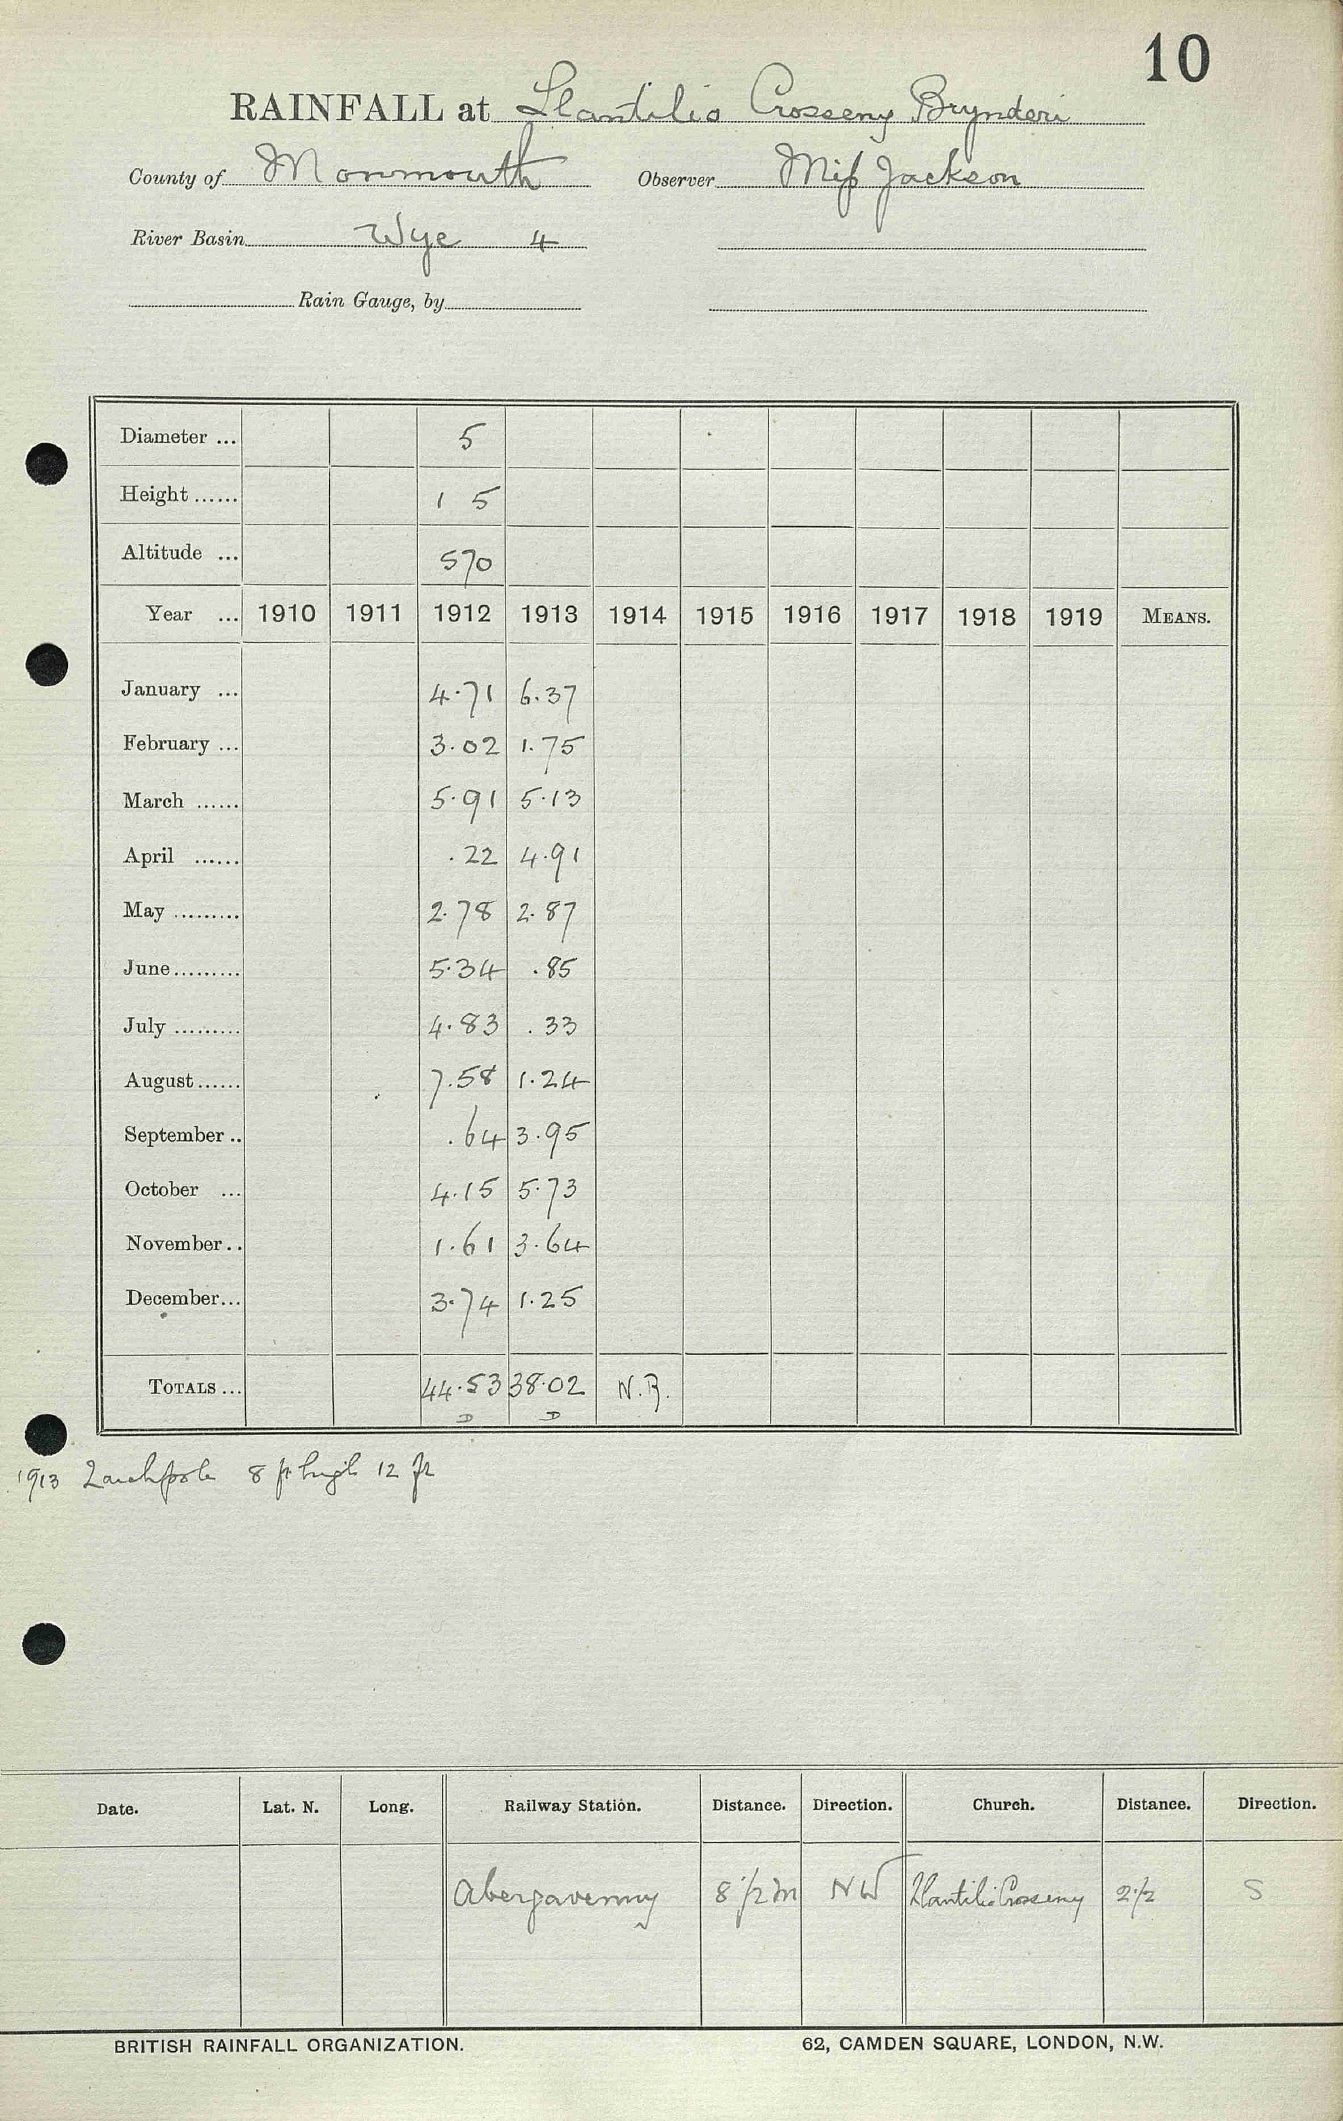 10
RAINFALL at Llantilio Crosseny Brynderi
County of Monmouth Observer Miss Jackson
River Basin Wye 4
Rain Gauge, by
Diameter ... 5
Height ...... 1 5
Altitude ... 570
Year ... 1910 1911 1912 1913 1914 1915 1916 1917 1918 1919 MEANS.
January ... 4.71 6.37
February ... 3.02 1.75
March ...... 5.91 5.13
April ...... .22 4.91
May ......... 2.78 2.87
June ......... 5.34 .85
July ......... 4.83 .33
August ...... 7.58 1.24
September .. .64 3.95
October ... 4.15 5.73
November .. 1.61 3.64
December ... 3.74 1.25
TOTALS ... 44.53 38.02 N.R.
D D
1913 Larchpole 8 ft high 12 ft
Date. Lat. N. Long. Railway Station. Distance. Direction. Church. Distance. Direction.
Abergavenny 8 1/2 m NW Llantilio Crosseny 2 1/2 S
BRITISH RAINFALL ORGANIZATION. 62, CAMDEN SQUARE, LONDON, N.W.